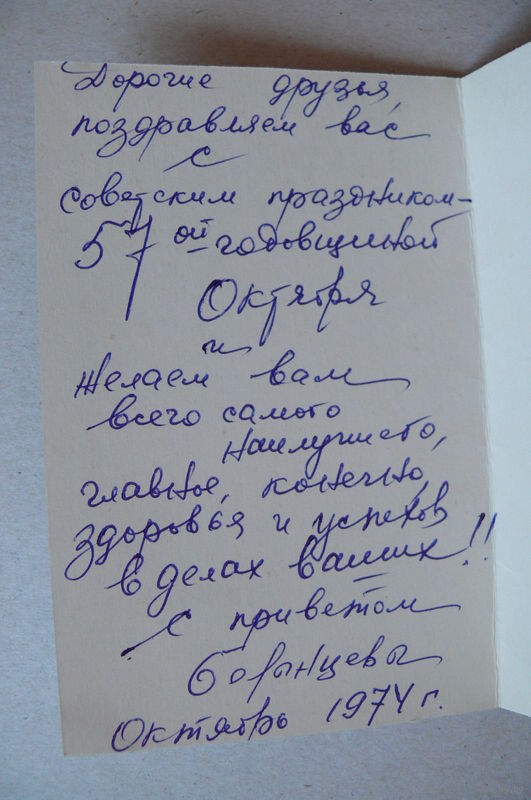 Дорогие друзья,
поздравляем вас
с
советским праздником-
57ой-годовщиной
Октября
и
желаем вам
всего самого
наилучшего,
главное, конечно,
здоровья и успехов
в делах ваших!!
С приветом
Октябрь 1974 г.